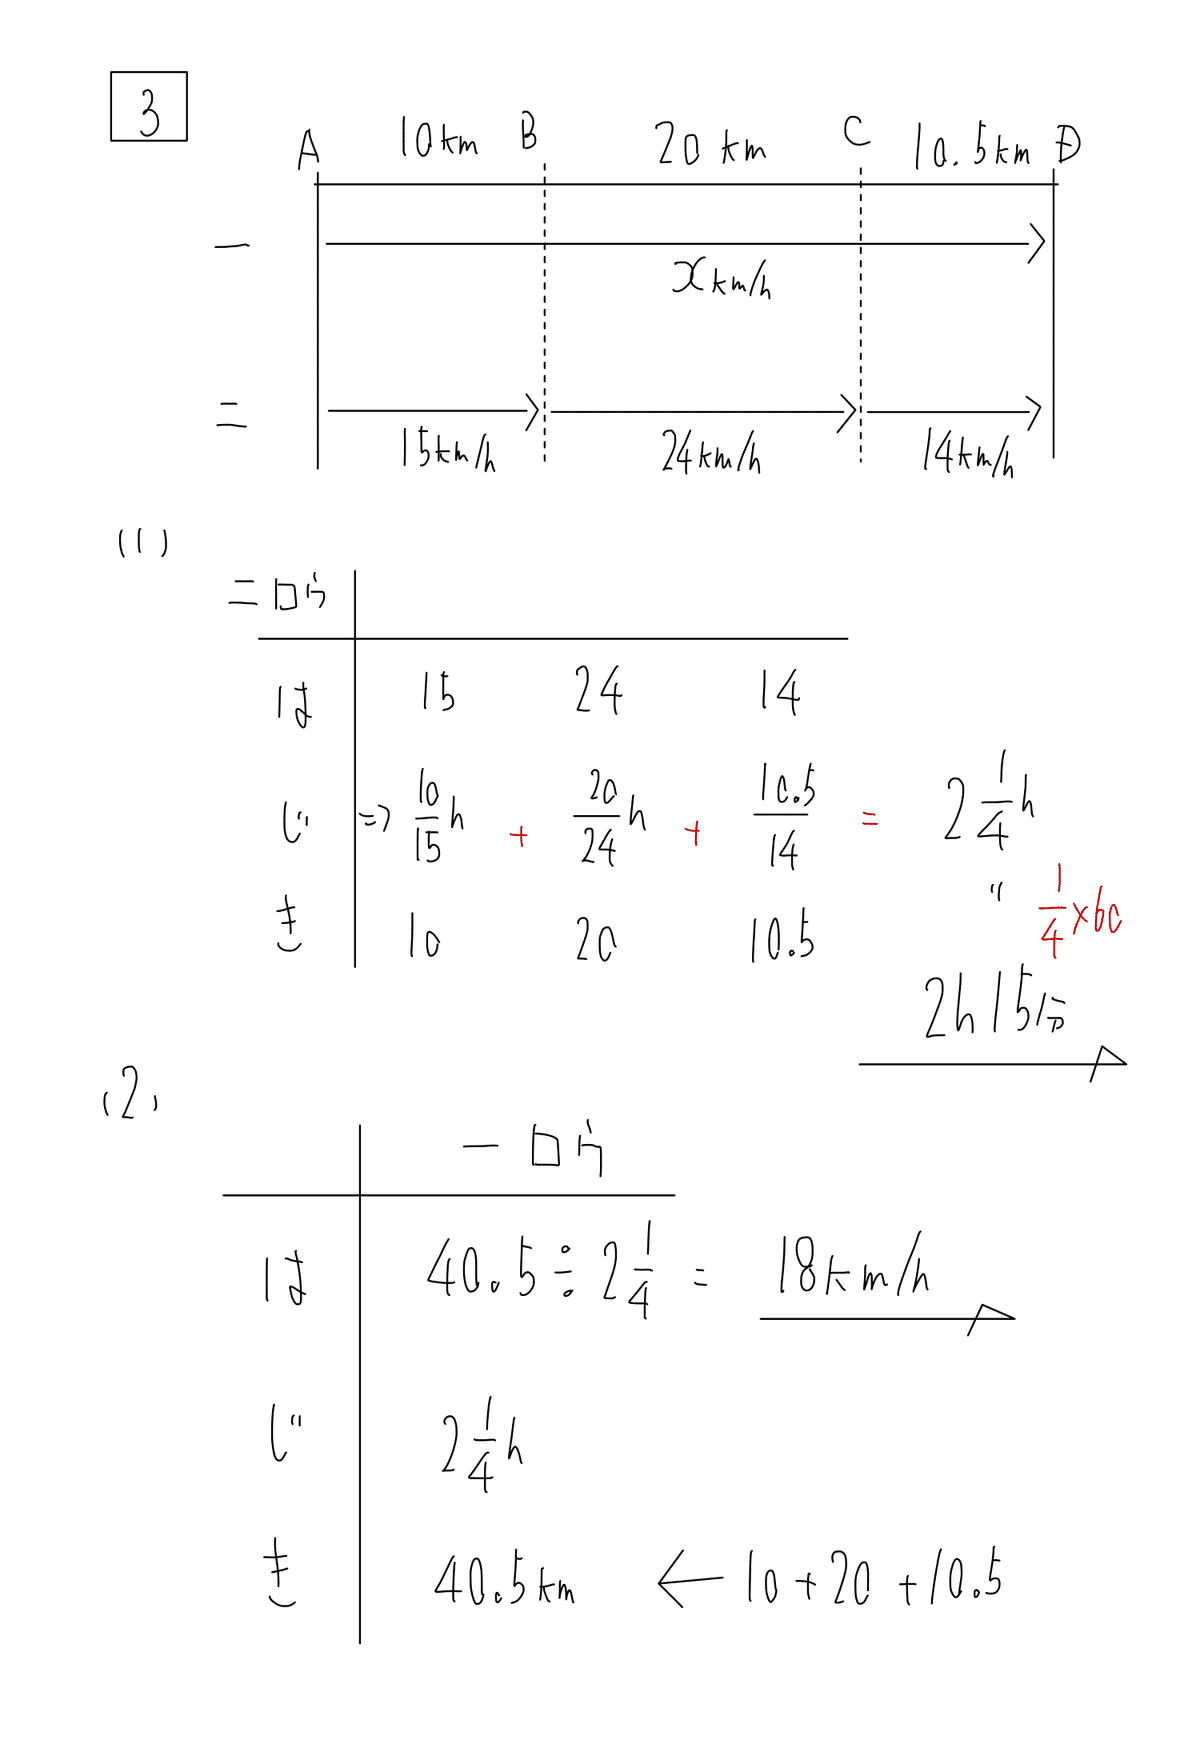 3
A 10km B 20km C 10.5km D
一
xkm/h
二
15km/h 24km/h 14km/h
(1)
二ロウ
は 15 24 14
じ ⇒ 10/15 h + 20/24 h + 10.5/14 = 2 1/4 h
〃 1/4×60
き 10 20 10.5
2h15分
(2)
一ロウ
は 40.5÷2 1/4 = 18km/h
じ 2 1/4 h
き 40.5km ← 10+20+10.5